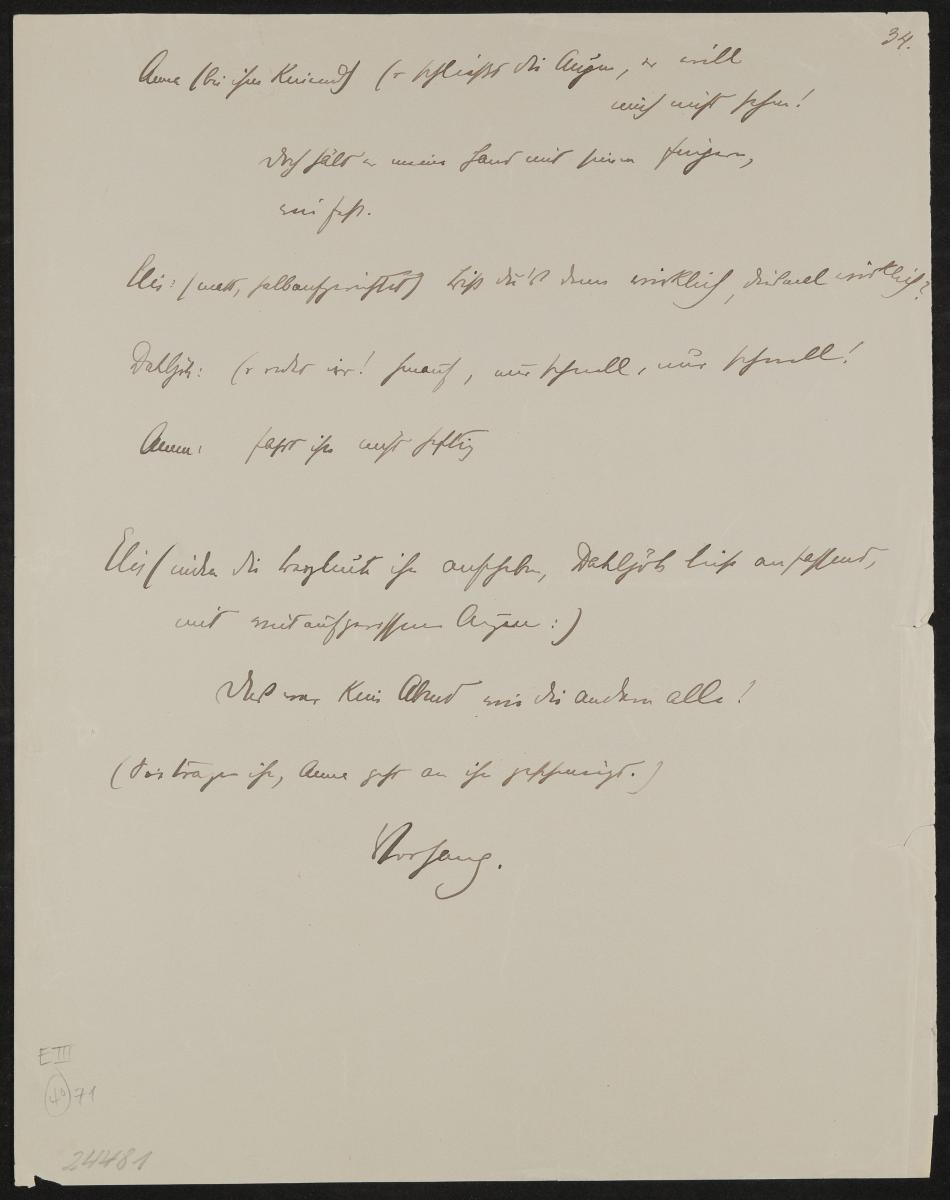 34.
Anna (bei ihm kniend) Er schließt die Augen, er will
mich nicht sehen!
Doch hält er meine Hand mit seinen Fingern,
wie fest.
Elis: (matt, halbaufgerichtet) bist du's denn wirklich, diesmal wirklich?
Dahlsjöh: Er redet irr! hinauf, nur schnell, nur schnell!
Anna: fasst ihn nicht heftig
Elis (indem die Bergleute ihn aufheben, Dahlsjöh leise anfassend,
mit weitaufgerissenen Augen:)
Dies war kein Abend wie die andern alle!
(Sie tragen ihn, Anna geht an ihn geschmiegt.)
Vorhang.
E III
4° 71
24481